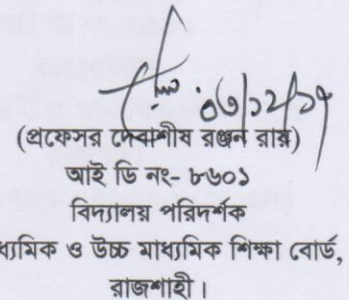 (প্রফেসর দেবাশীষ রঞ্জন রায়)
আই ডি নং- ৮৬০১
বিদ্যালয় পরিদর্শক
ধ্যমিক ও উচ্চ মাধ্যমিক শিক্ষা বোর্ড,
রাজশাহী।